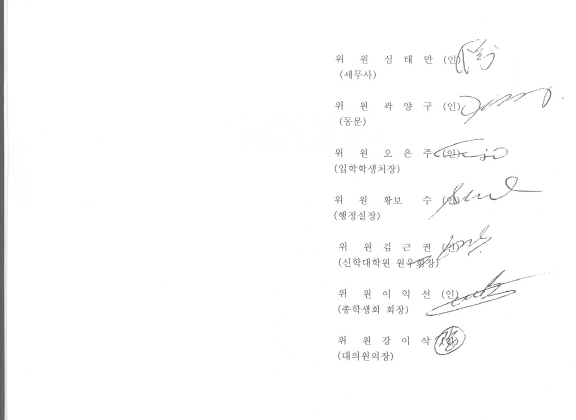 위 원 심 태 만 (인)
(세무사)
위 원 곽 양 구 (인)
(동문)
위 원 오 은 주 (인)
(입학학생처장)
위 원 황보 수 (인)
(행정실장)
위 원 김 근 권 (인)
(신학대학원 원우회장)
위 원 이 익 선 (인)
(총학생회 회장)
위 원 강 이 삭
(대의원의장)